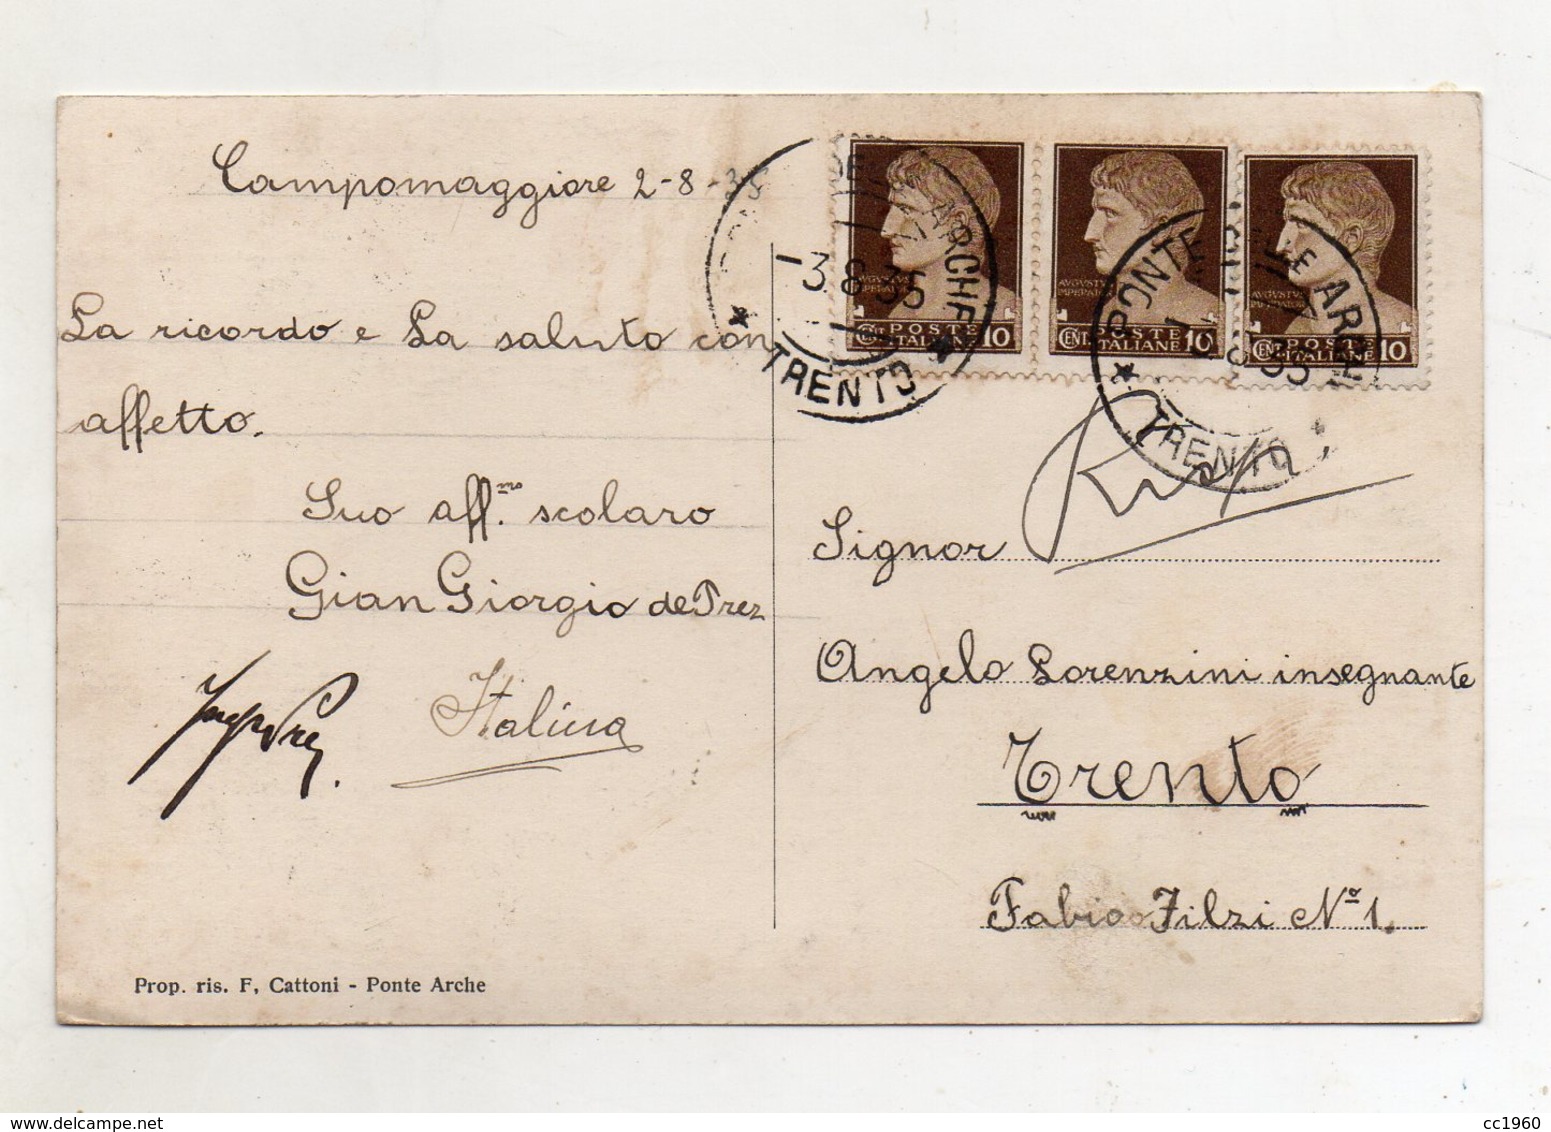 Campomaggiore 2-8-35
La ricordo e La saluto con
affetto.
Suo aff.mo scolaro
Gian Giorgio de Prez
Italina
Prop. ris. F. Cattoni - Ponte Arche
AUGUSTUS IMPERATOR
CENT. POSTE ITALIANE 10
AUGUSTUS IMPERATOR
CENT. POSTE ITALIANE 10
AUGUSTUS IMPERATOR
CENT. POSTE ITALIANE 10
PONTE DELLE ARCHE
-3.8.35
* TRENTO *
PONTE DELLE ARCHE
35
* TRENTO *
Signor
Angelo Lorenzini insegnante
Trento
Fabio Filzi Nº 1.
cc1960